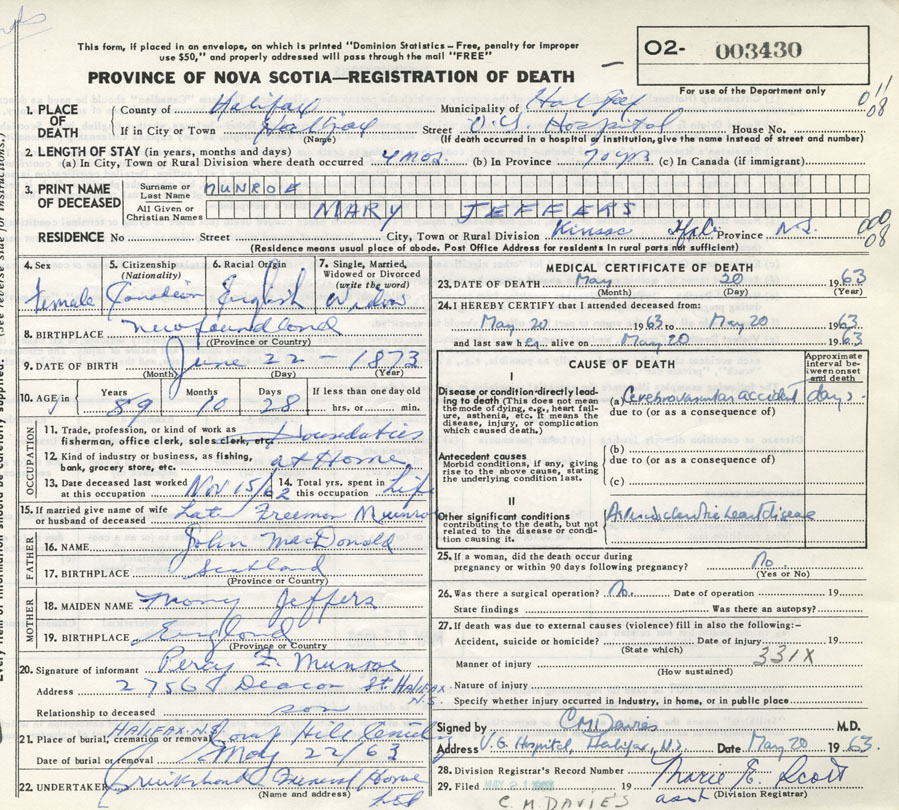 This form, if placed in an envelope, on which is printed "Dominion Statistics – Free, penalty for improper
use $50," and properly addressed will pass through the mail "FREE"
PROVINCE OF NOVA SCOTIA—REGISTRATION OF DEATH
O2- 003430
For use of the Department only
1. PLACE OF DEATH County of Halifax Municipality of Halifax 011 08
If in City or Town Halifax Street V.G. Hospital House No.
(Name) (If death occurred in a hospital or institution, give the name instead of street and number)
2. LENGTH OF STAY (in years, months and days)
(a) In City, Town or Rural Division where death occurred 4 mos. (b) In Province 70 yrs (c) In Canada (if immigrant)
3. PRINT NAME OF DECEASED Surname or Last Name MUNROE
All Given or Christian Names MARY JEFFERS
RESIDENCE No Street City, Town or Rural Division Kinsac Hfx. Province N.S. 000 08
(Residence means usual place of abode. Post Office Address for residents in rural parts not sufficient)
4. Sex Female
5. Citizenship (Nationality) Canadian
6. Racial Origin English
7. Single, Married, Widowed or Divorced (write the word) Widow
8. BIRTHPLACE Newfoundland
(Province or Country)
9. DATE OF BIRTH June 22 – 1873
(Month) (Day) (Year)
10. AGE in Years 89 Months 10 Days 28 If less than one day old hrs. or min.
OCCUPATION
11. Trade, profession, or kind of work as fisherman, office clerk, sales clerk, etc. Housduties
12. Kind of industry or business, as fishing, bank, grocery store, etc. at Home
13. Date deceased last worked at this occupation Nov 15/62 14. Total yrs. spent in this occupation Life
15. If married give name of wife or husband of deceased Late Freeman Munroe
FATHER
16. NAME John MacDonald
17. BIRTHPLACE Scotland
(Province or Country)
MOTHER
18. MAIDEN NAME Mary Jeffers
19. BIRTHPLACE England
(Province or Country)
20. Signature of informant Percy F. Munroe
Address 2756 Deacon St. HALIFAX N.S.
Relationship to deceased son
21. Place of burial, cremation or removal HALIFAX N.S. Hill
Date of burial or removal May 22/63
22. UNDERTAKER Cruikshank Funeral Home
(Name and address)
MEDICAL CERTIFICATE OF DEATH
23. DATE OF DEATH May 20 1963
(Month) (Day) (Year)
24. I HEREBY CERTIFY that I attended deceased from:
May 20 1963 to May 20 1963
and last saw her alive on May 20 1963
CAUSE OF DEATH
Approximate interval between onset and death
I
Disease or condition directly leading to death (This does not mean the mode of dying, e.g., heart failure, asthenia, etc. It means the disease, injury, or complication which caused death.)
(a) Cerebrovascular accident days.
due to (or as a consequence of)
Antecedent causes
Morbid conditions, if any, giving rise to the above cause, stating the underlying condition last.
(b)
due to (or as a consequence of)
(c)
II
Other significant conditions
contributing to the death, but not related to the disease or condition causing it.
heart disease
25. If a woman, did the death occur during pregnancy or within 90 days following pregnancy? No
(Yes or No)
26. Was there a surgical operation? No. Date of operation 19
State findings Was there an autopsy?
27. If death was due to external causes (violence) fill in also the following:–
Accident, suicide or homicide? Date of injury 19
(State which)
Manner of injury 331X
(How sustained)
Nature of injury
Specify whether injury occurred in industry, in home, or in public place
Signed by C M Davies M.D.
Address V.G. Hospital, Halifax, N.S. Date May 20 1963.
28. Division Registrar's Record Number
29. Filed 19 Marie E. Scott
C. M. DAVIES asst (Division Registrar)